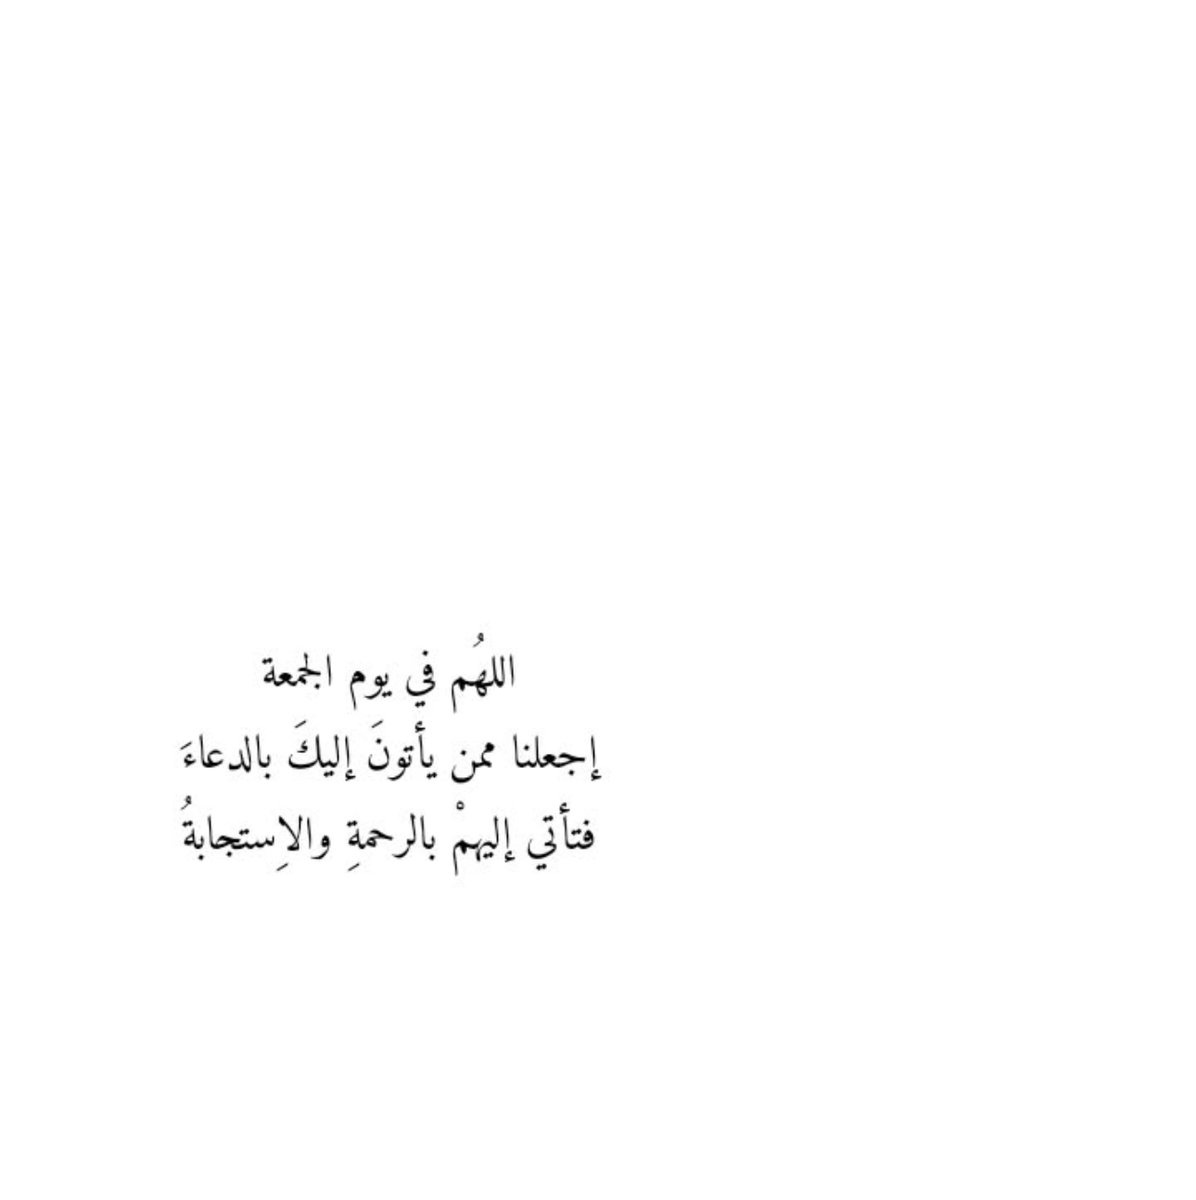 اللهُم في يوم الجمعة
إجعلنا ممن يأتونَ إليكَ بالدعاءَ
فتأتي إليهمْ بالرحمةِ والاِستجابةُ